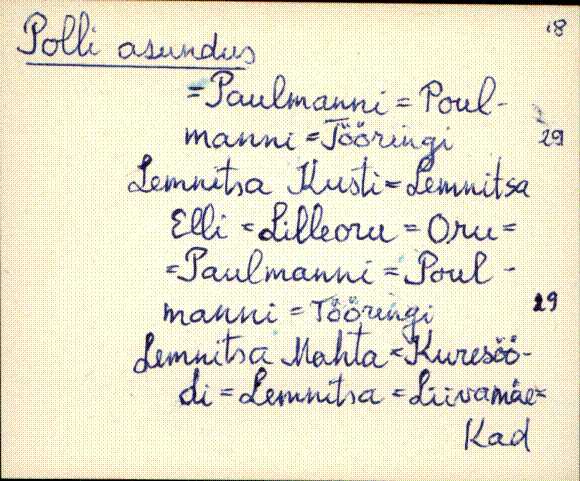 18
Polli asundus
=Paulmanni = Poul-
manni = Tööringi 29
Lemnitsa Kusti = Lemnitsa
Elli = Lilleoru = Oru =
=Paulmanni = Poul-
manni = Tööringi 29
Lemnitsa Mahta = Kuresöö-
di = Lemnitsa = Liivamäe=
Kad